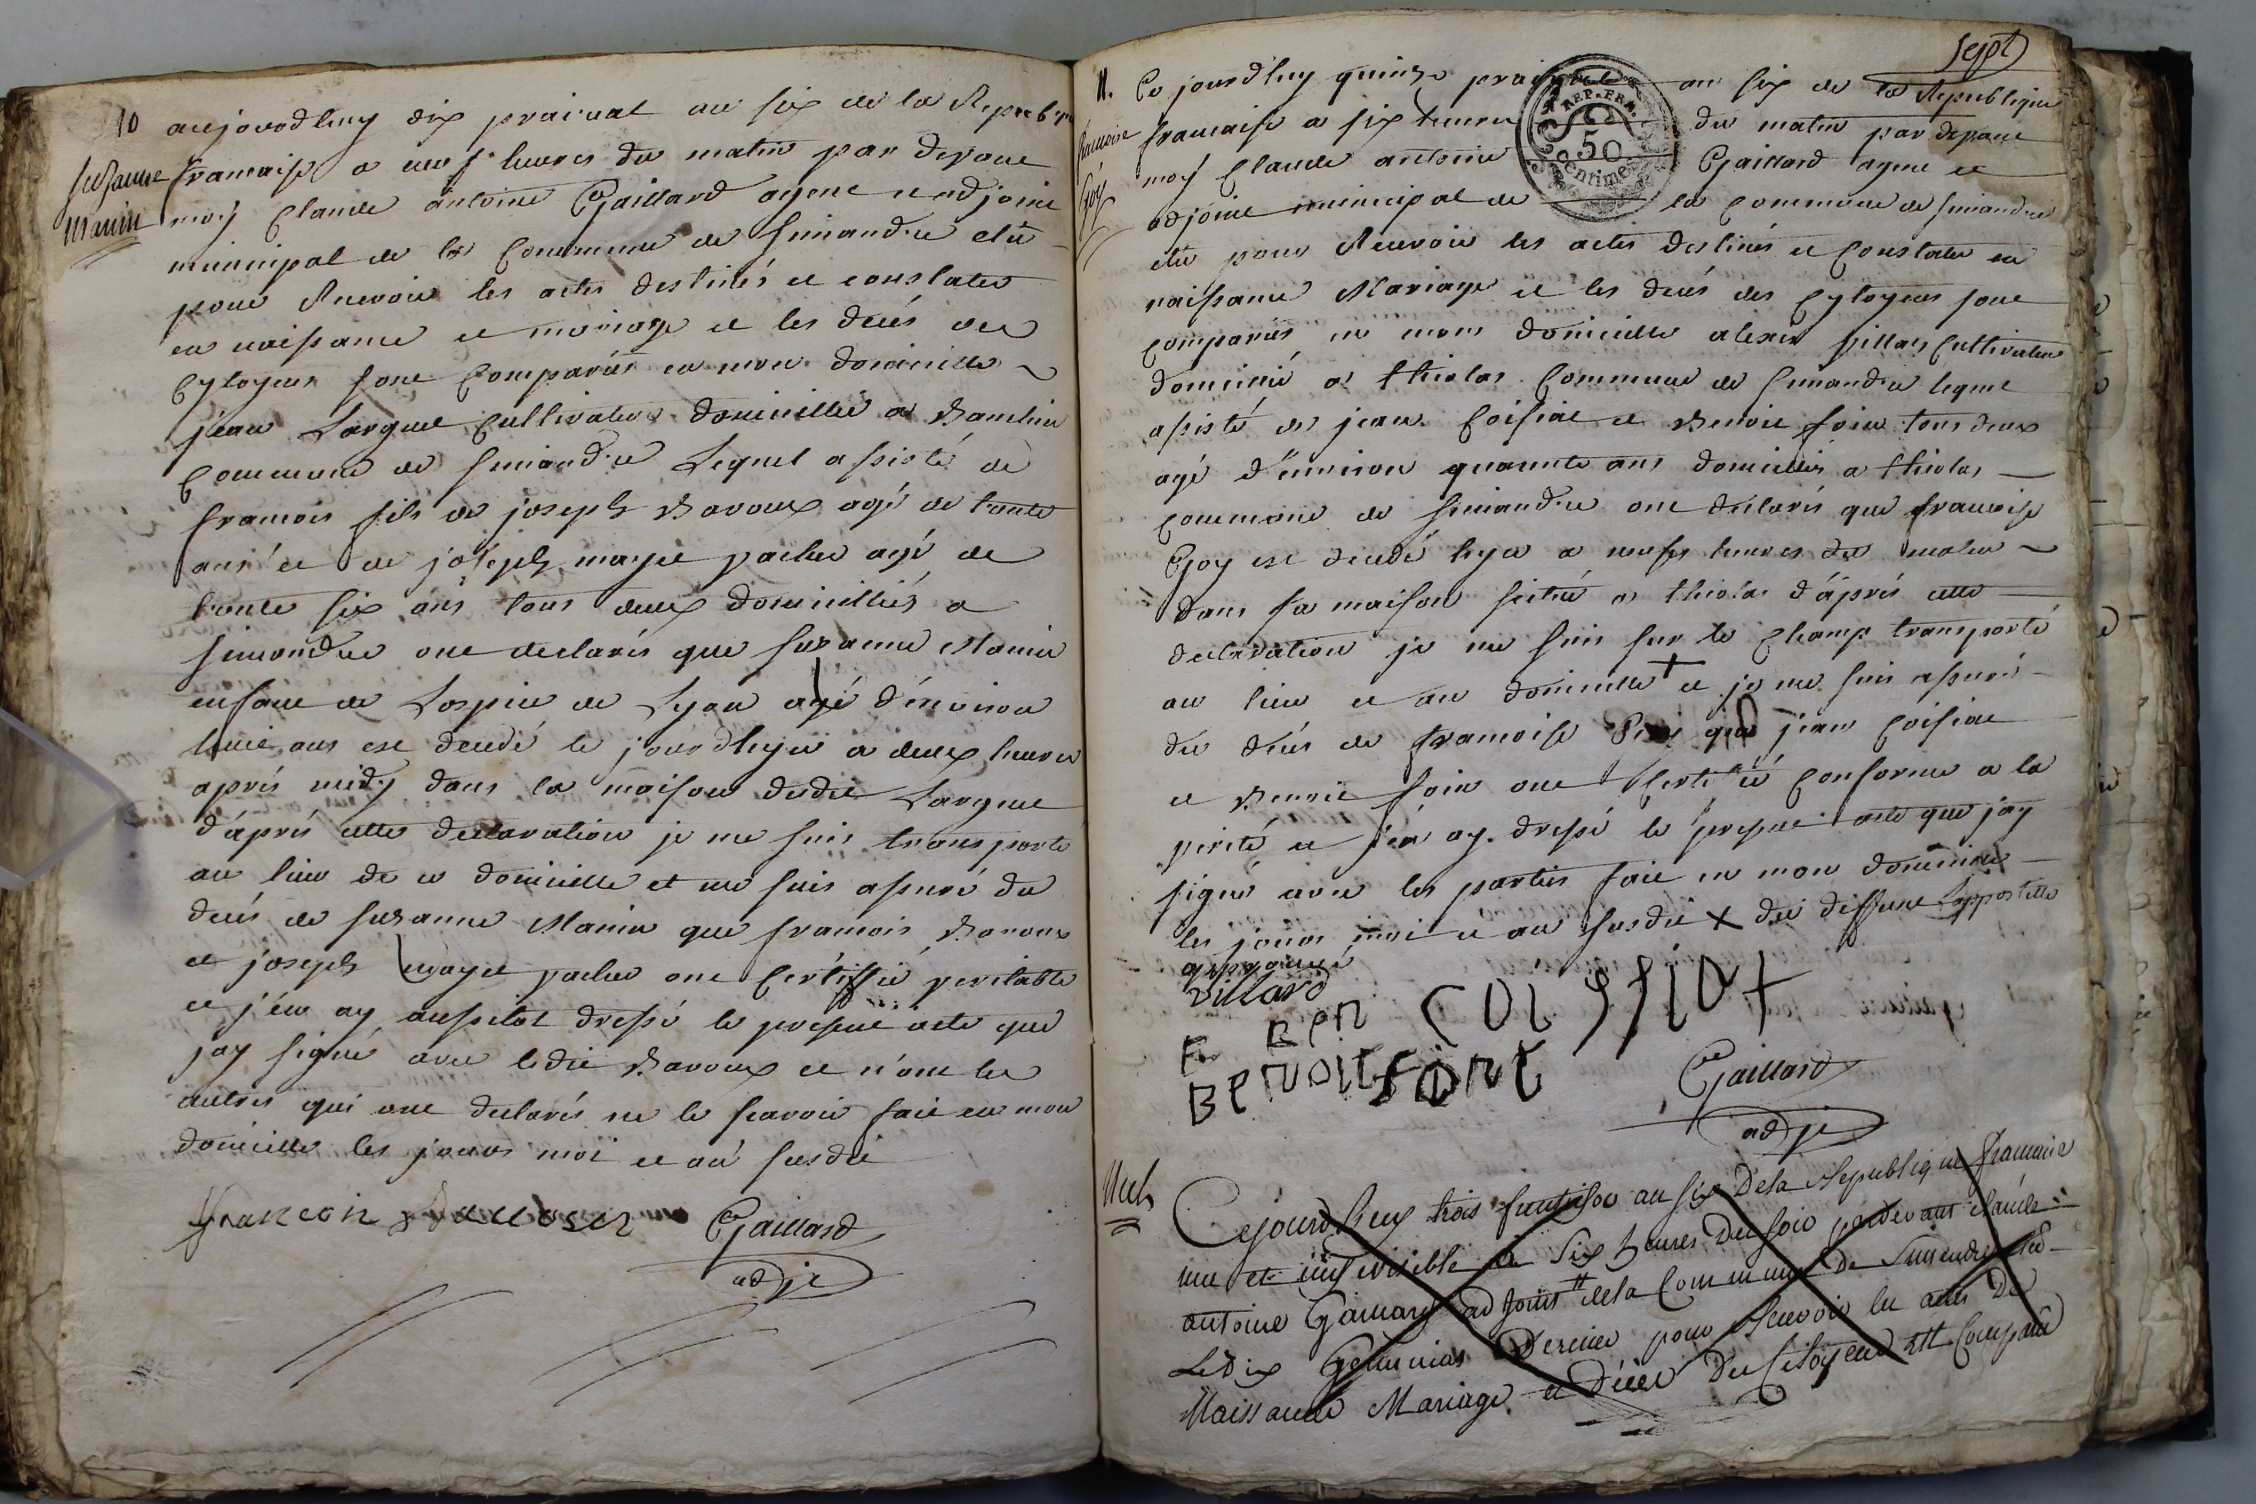 10 aujourdhuy dix prairial an six de la Republique
suzanne francaise a neuf heures du matin par devant
Manin moy Claude antoine Gaillard agent et adjoint
municipal de la Commune de simandre elu
pour Recevoir les actes destinés a constater
en naissance et mariage et les decés des
Cytoyens sont Comparus en mon domicille
jean Largue Cultivateur domicillié a
Commune de simandre Lequel assisté de
francois fils de joseph Bavoux agé de trente
ans et de joseph marye pacher agé de
trente six ans tous deux domicilliés a
simandre ont declarés que suzanne Manin
enfant de Lospice de Lyon agé d'environ
huit ans est decedé le jourdhyer a deux heures
aprés midy dans la maison dudit Largue
d'aprés cette declaration je me suis transporté
au lieu de ce domicille et me suis assuré du
decés de suzanne Manin que francois Bavoux
et joseph marye pacher ont Certiffié veritable
et j'en ay aussitot dressé le present acte que
jay signé avec ledit Bavoux et n'ont les
autres qui ont declarés ne le scavoir fait en mon
domicille les jours moi et an susdit
francois Bavoux Gaillard
adjt
sept
11. Ce jourdhuy quinze prairial an six de la Republique
francoise francaise a six heures du matin par devant
Goy moy Claude antoine Gaillard agent et
adjoint municipal de la Commune de simandre
elu pour Recevoir les actes destinés a Constater en
naissance Mariage et les decés des Cytoyens sont
Comparus en mon domicille alexis villard Cultivateur
domicilié a thiolas Commune de simandre lequel
assisté de jean Coissiat et Benoit foin tous deux
agé d'environ quarante ans domicilliés a thiolas
Commune de simandre ont declarés que francoise
Goy est decedé hyer a neufs heures du matin
dans sa maison scitué a thiolas d'aprés cette
declaration je me suis sur le Champ transporté
au lieu et au domicille + et je me suis assuré
du decés de francoise que jean Coissiat
et Benoit foin ont Certifié Conforme a la
verité et j'en ay dressé le present acte que jay
signé avec les parties fait en mon domicille
les jours moi et an susdit + du deffunt Lappostille
approuvé
villard
COISSIAT
BENOIT FONT
Gaillard
adjt
Cejourdhuy trois fructidor an six Dela Republique francaise
une et indivisible a Six heures Du soir pardevant claude
antoine Gaillard adjoint dela Commune De Simandre élu
Ledix Germinas Dernier pour Recevoir les actes De
Naissance Mariage et Décés Des Citoyens Est Comparu